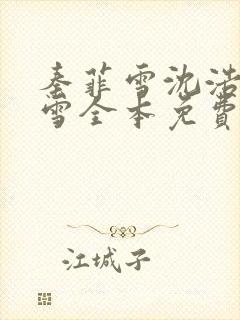 秦菲雪沈浩
雪全本免費
江城子